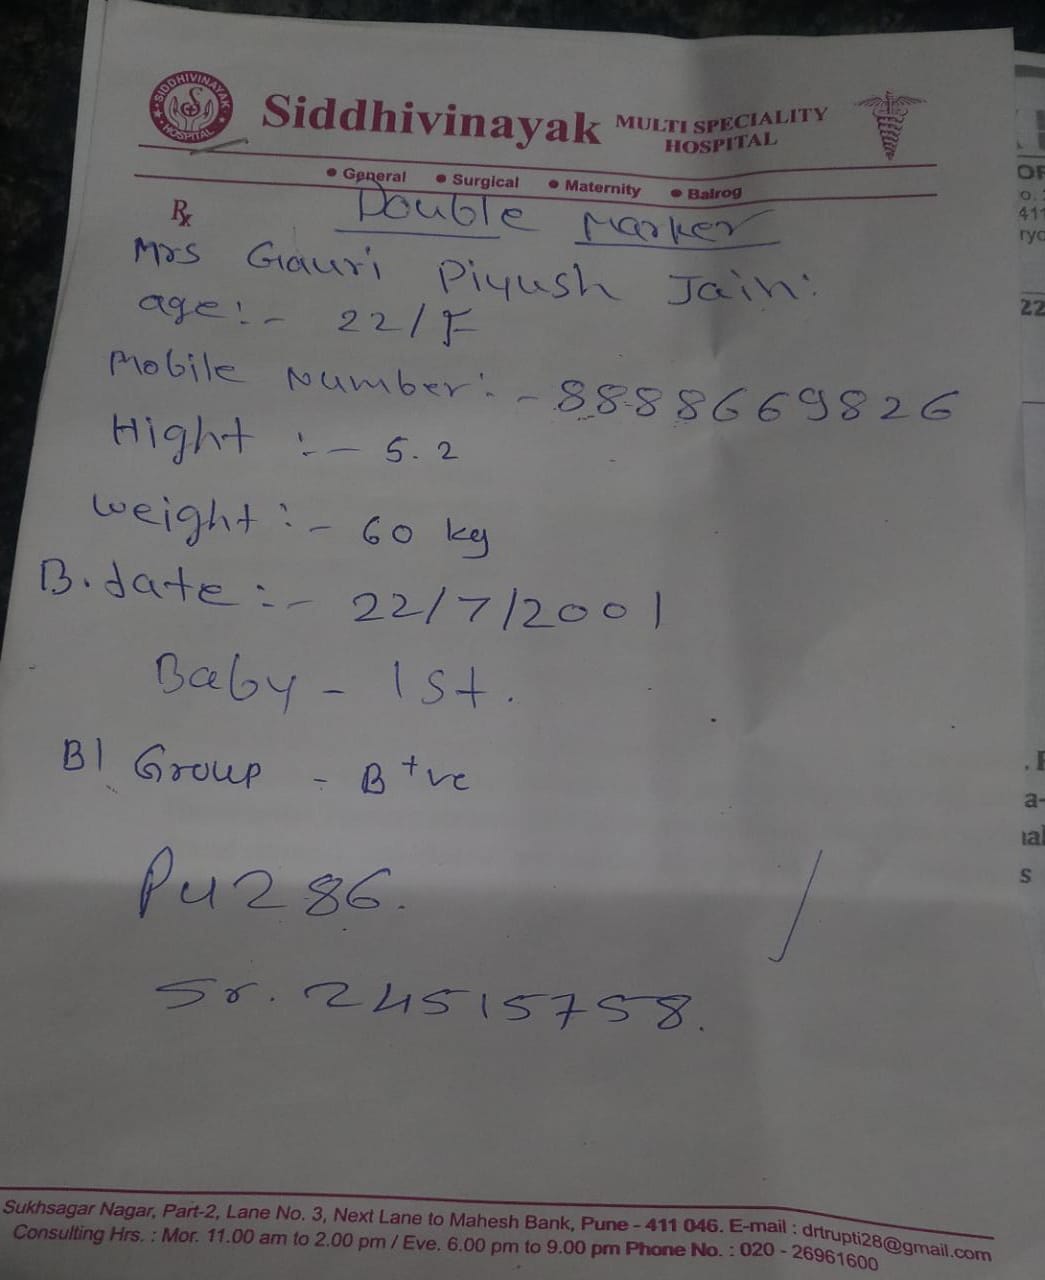 SIDDHIVINAYAK
HOSPITAL
Siddhivinayak MULTI SPECIALITY
HOSPITAL
• General • Surgical • Maternity • Balrog
Rx Double Marker
Mrs Gauri Piyush Jain.
age:- 22/F
Mobile Number:- 8888669826
Hight :- 5.2
weight :- 60 kg
B.date :- 22/7/2001
Baby - 1st.
Bl Group - B+ve
Pu286.
Sr. 24515758.
Sukhsagar Nagar, Part-2, Lane No. 3, Next Lane to Mahesh Bank, Pune - 411 046. E-mail : drtrupti28@gmail.com
Consulting Hrs. : Mor. 11.00 am to 2.00 pm / Eve. 6.00 pm to 9.00 pm Phone No. : 020 - 26961600